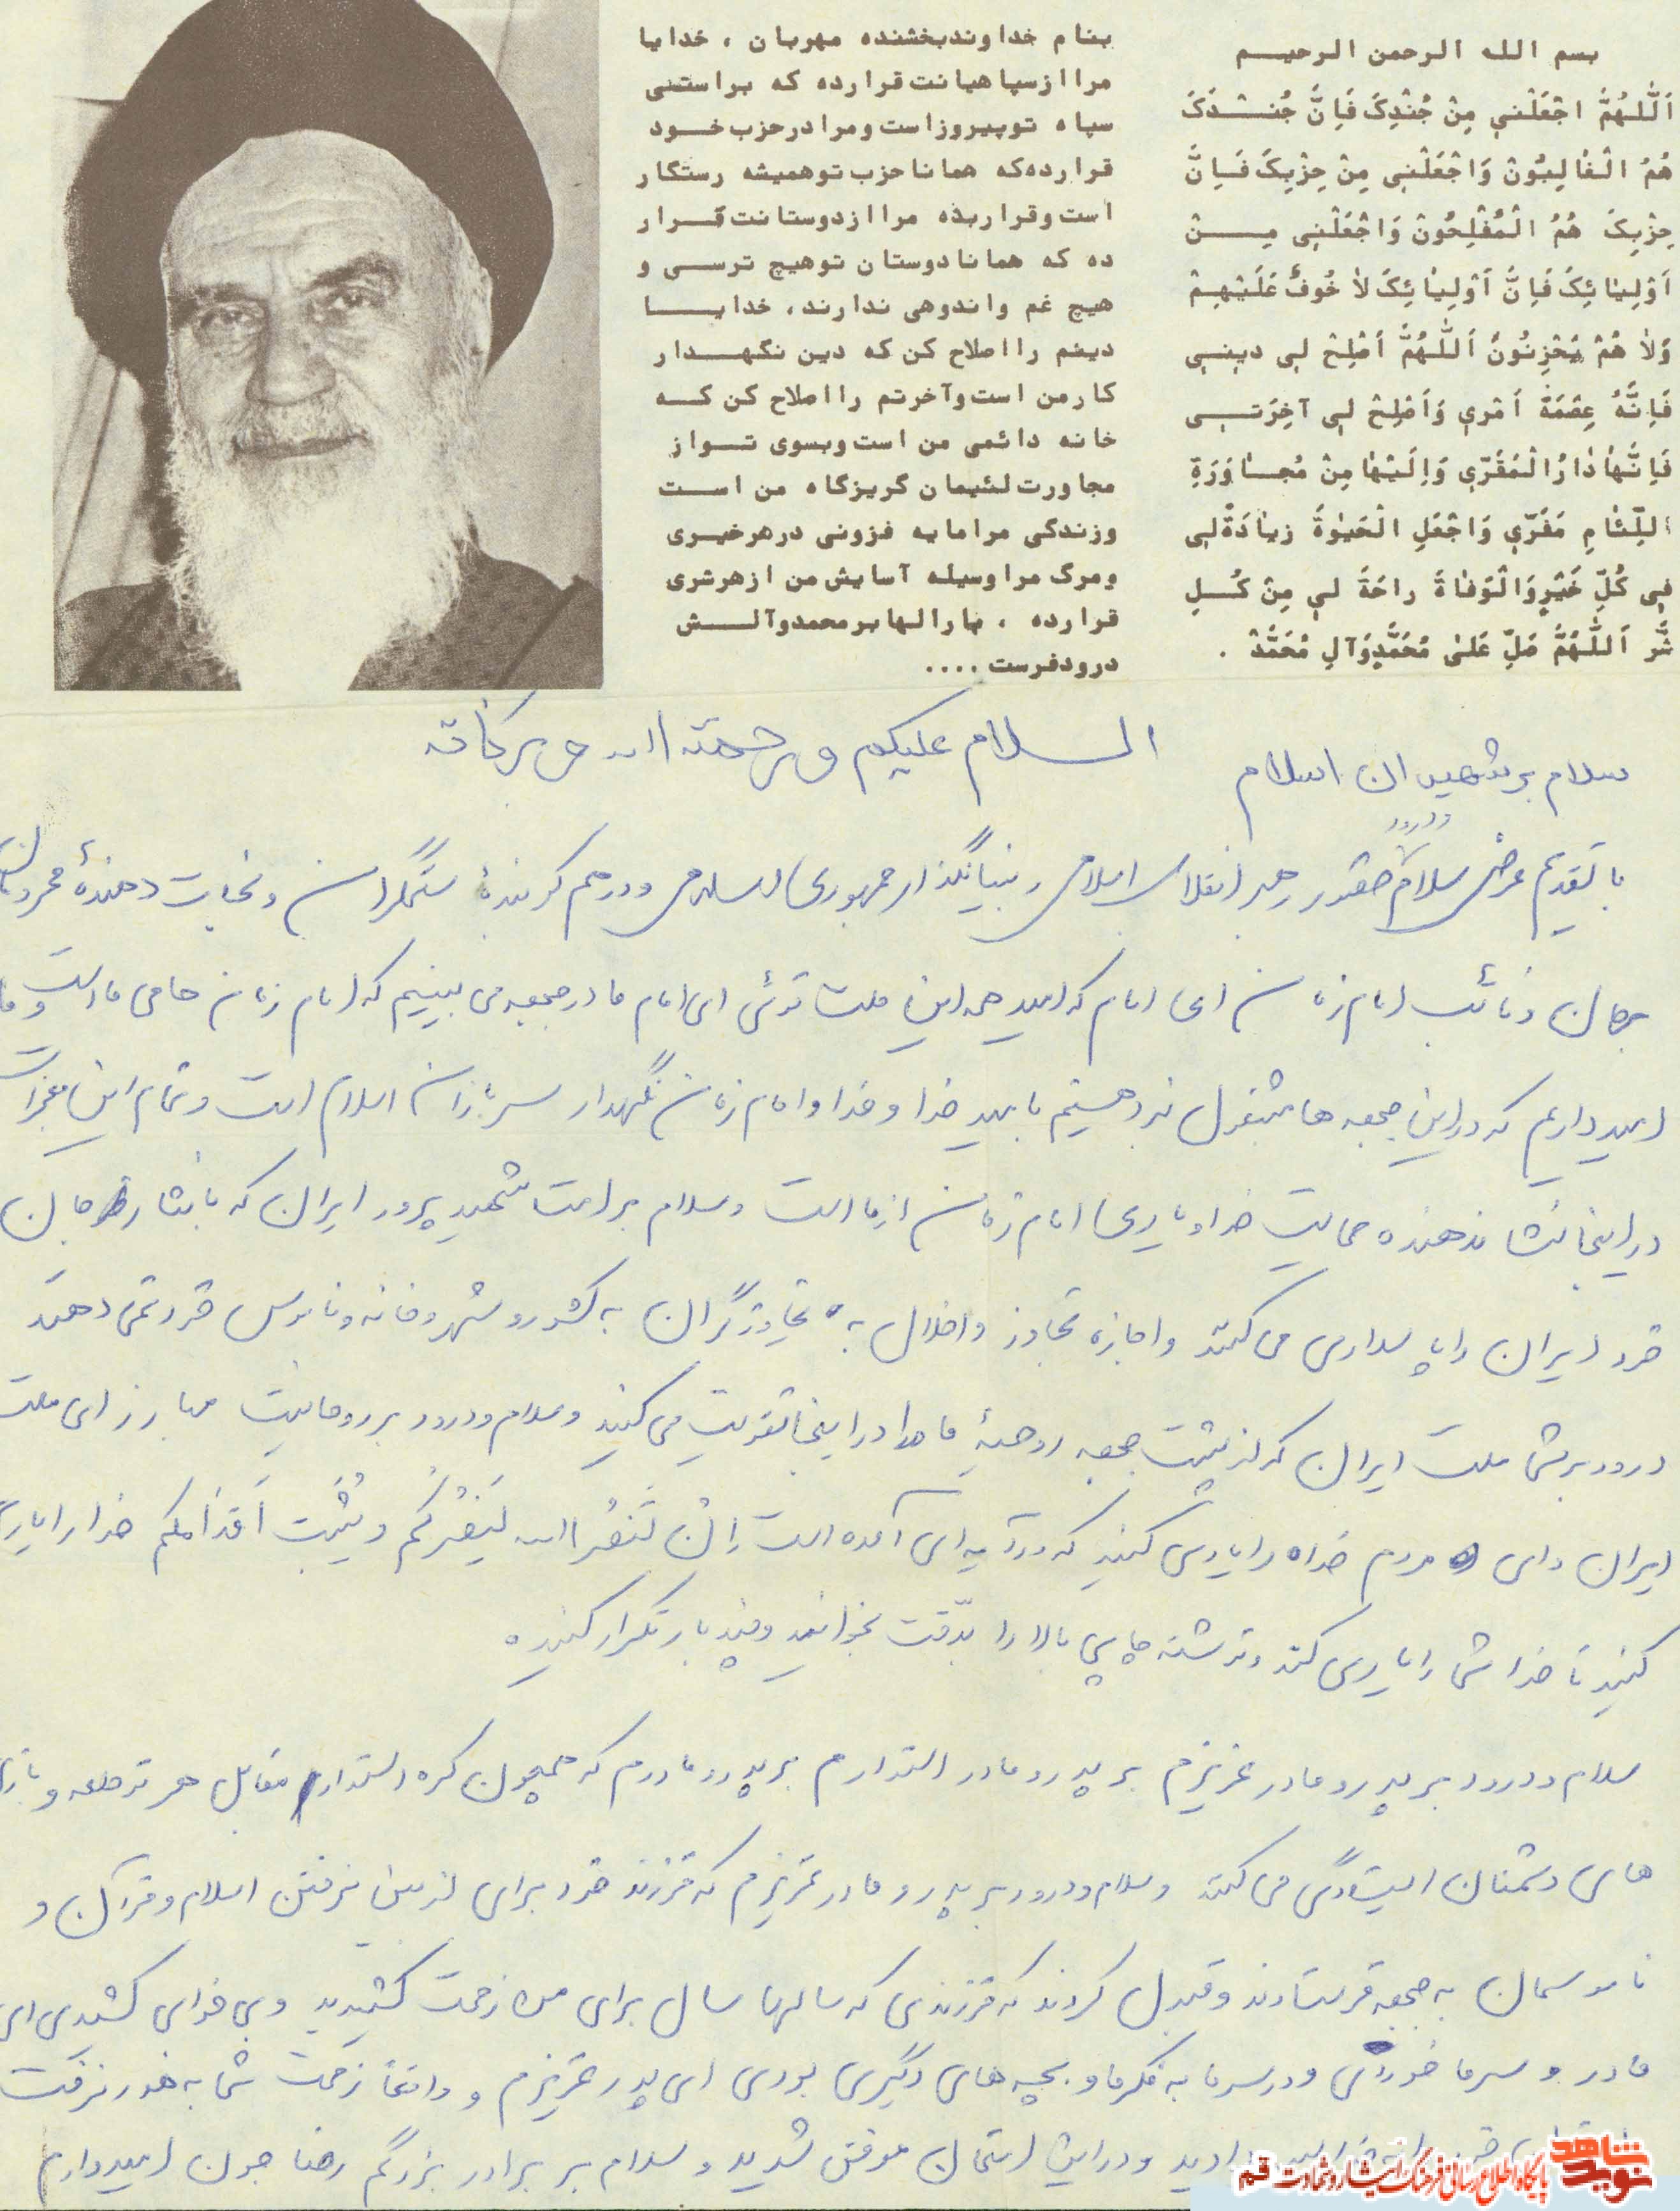 بسم الله الرحمن الرحیم
اَللّهُمَّ اجْعَلْنی مِنْ جُنْدِکَ فَاِنَّ جُنْدَکَ
هُمُ الْغالِبُونْ وَاجْعَلْنی مِنْ حِزْبِکَ فَاِنَّ
حِزْبِکَ هُمُ الْمُفْلِحُونْ وَاجْعَلْنِی مِنْ
اَوْلِیائِکَ فَاِنَّ اَوْلِیائِکَ لاٰ خُوفٌ عَلَیْهِمْ
وَلاٰ هُمْ یَحْزِنُونَ اَللّهُمَّ اَصْلِحْ لی دینی
فَاِنَّهُ عِصْمَةَ اَمْری وَاَصْلِحْ لی آخِرَتی
فَاِنَّهاٰ دٰارُ الْمَقَرّی وَاِلَیْهاٰ مِنْ مُجاٰوَرَةِ
اللِّئاٰمِ مَفَرّی وَاجْعَلِ الْحَیٰوةَ زیاٰدَةً لی
فی کُلِّ خَیْرٍ وَالْوَفاٰةَ راحَةً لی مِنْ کُلِ
شَّرِ اَللّهُمَّ صَلِّ عَلیٰ مُحَمَّدٍ وَآلِ مُحَمَّدْ .
بنام خداوند بخشنده مهربان ، خدایا
مرا از سپاهیانت قرار ده که براستی
سپاه تو پیروز است و مرا در حزب خود
قرار ده که همانا حزب تو همیشه رستگار
است و قرار بده مرا از دوستانت قرار
ده که همانا دوستان تو هیچ ترسی و
هیچ غم واندوهی ندارند، خدایا
دینم را اصلاح کن که دین نگهدار
کار من است و آخرتم را اصلاح کن که
خانه دائمی من است و بسوی تو از
مجاورت لئیمان گریزگاه من است
وزندگی مرا مایه فزونی در هر خیری
ومرگ مرا وسیله آسایش من از هر شری
قرار ده ، بارالها بر محمد و آلش
درود فرست ....
السلام علیکم و رحمته الله و برکاته
سلام بر شهیدان اسلام
با تقدیم عرض سلام و درود حضور رهبر انقلاب اسلامی و بنیانگذار جمهوری اسلامی و درهم کوبندهٔ ستمگران و نجات دهندهٔ محرومان
جهان و نائب امام زمان ای امام که امید همه این ملت توئی ای امام ما در جبهه می بینیم که امام زمان حامی ما است و ما
امیدواریم که در این جبهه ها مشغول نبرد هستیم با امید خدا و خدا و امام زمان نگهدار سربازان اسلام است و تمام این معجزات
در اینجا نشاندهنده حمایت خدا و یاری امام زمان از ما است و سلام بر امت شهید پرور ایران که با نثار جان
خود ایران را پاسداری می کنند و اجازه تجاوز و اخلال به تجاوزگران به کشور و شهر و خانه و ناموس خود نمی دهند
درود بر شما ملت ایران که از پشت جبهه روحیهٔ ما را در اینجا تقویت می کنید و سلام و درود بر روحانیت مبارز ای ملت
ایران و ای مردم خدا را یاری کنید که در آیه ای آمده است اِنْ تَنْصُرُ الله یَنْصُرْکُم و یُثَبِت اَقدامَکم خدا را یاری
کنید تا خدا شما را یاری کند و نوشته چاپی بالا را بدقت بخوانید و چند بار تکرار کنید
سلام و درود بر پدر و مادر عزیزم بر پدر و مادر استوارم بر پدر و مادرم که همچون کوه استوار مقابل هر توطئه و
های دشمنان ایستادگی می کنند و سلام و درود بر پدر و مادر عزیزم که فرزند خود برای از بین نرفتن اسلام و قرآن و
ناموسمان به جبهه فرستادند و قبول کردند که فرزندی که سالها سال برای من زحمت کشیدید و بی خوابی کشیدی ای
مادر و سرما خوردی و در سرما به فکر ما و بچه های دیگری بودی ای پدر عزیزم و واقعا زحمت شما به هدر نرفت
دادید و در این امتحان موفق شدید و سلام بر برادر بزرگم رضا جون امیدوارم
نوید شاهد
پایگاه اطلاع رسانی فرهنگ ایثار و شهادت قم